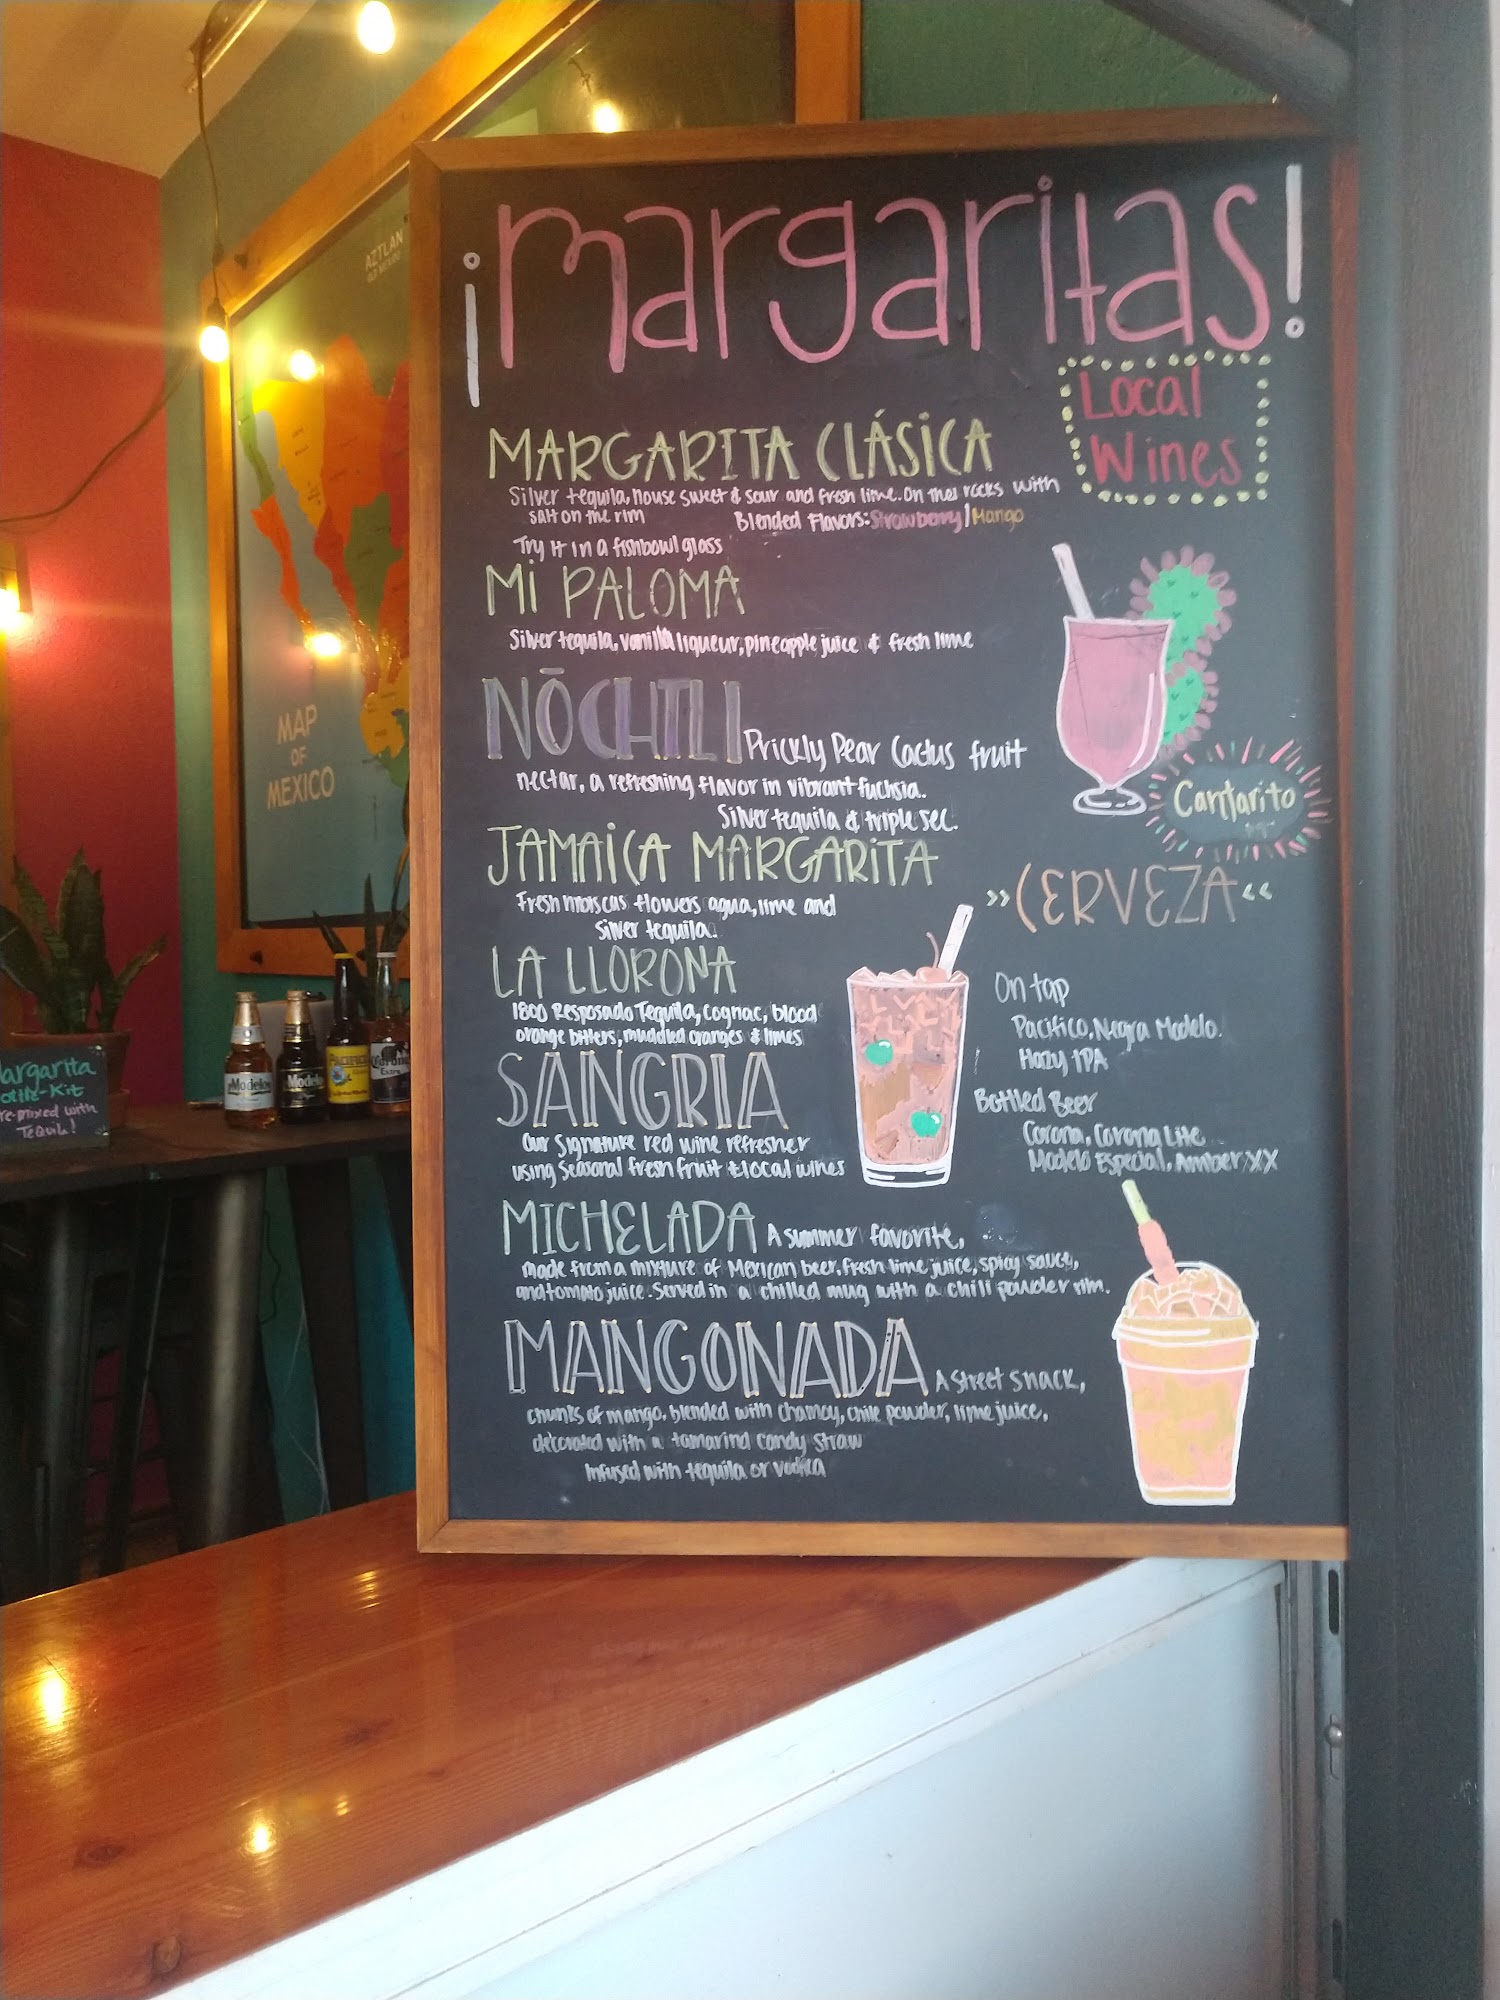 ¡margaritas!
Local
Wines
MARGARITA CLÁSICA
Silver tequila, house sweet & sour and fresh lime. On the rocks with
salt on the rim
Blended Flavors: Strawberry | Mango
Try it in a fishbowl glass
Mi PALOMA
Silver tequila, vanilla liqueur, pineapple juice & fresh lime
NŌCHTLI Prickly Pear Cactus fruit
nectar, a refreshing flavor in vibrant fuchsia.
Silver tequila & triple sec.
JAMAiCA MARGARiTA
Fresh hibiscus flowers agua, lime and
silver tequila.
LA LLORONA
1800 Resposado Tequila, Cognac, blood
orange bitters, muddled oranges & limes
SANGRIA
Our signature red wine refresher
using seasonal fresh fruit & local wines
MICHELADA A summer favorite,
made from a mixture of Mexican beer, fresh lime juice, spicy sauce,
and tomato juice. Served in a chilled mug with a chili powder rim.
MANGONADA A street snack,
chunks of mango, blended with chamoy, chile powder, lime juice,
decorated with a tamarind candy straw
Infused with tequila or vodka
Cantarito
»CERVEZA«
On tap
Pacifico, Negra Modelo.
Hazy IPA
Bottled Beer
Corona, Corona Lite
Modelo Especial, Amber XX
AZTLAN
MAP
OF
MEXICO
Modelo
Modelo
PACIFICO
Corona
Extra
argarita
ottle-Kit
re-mixed with
Tequila!